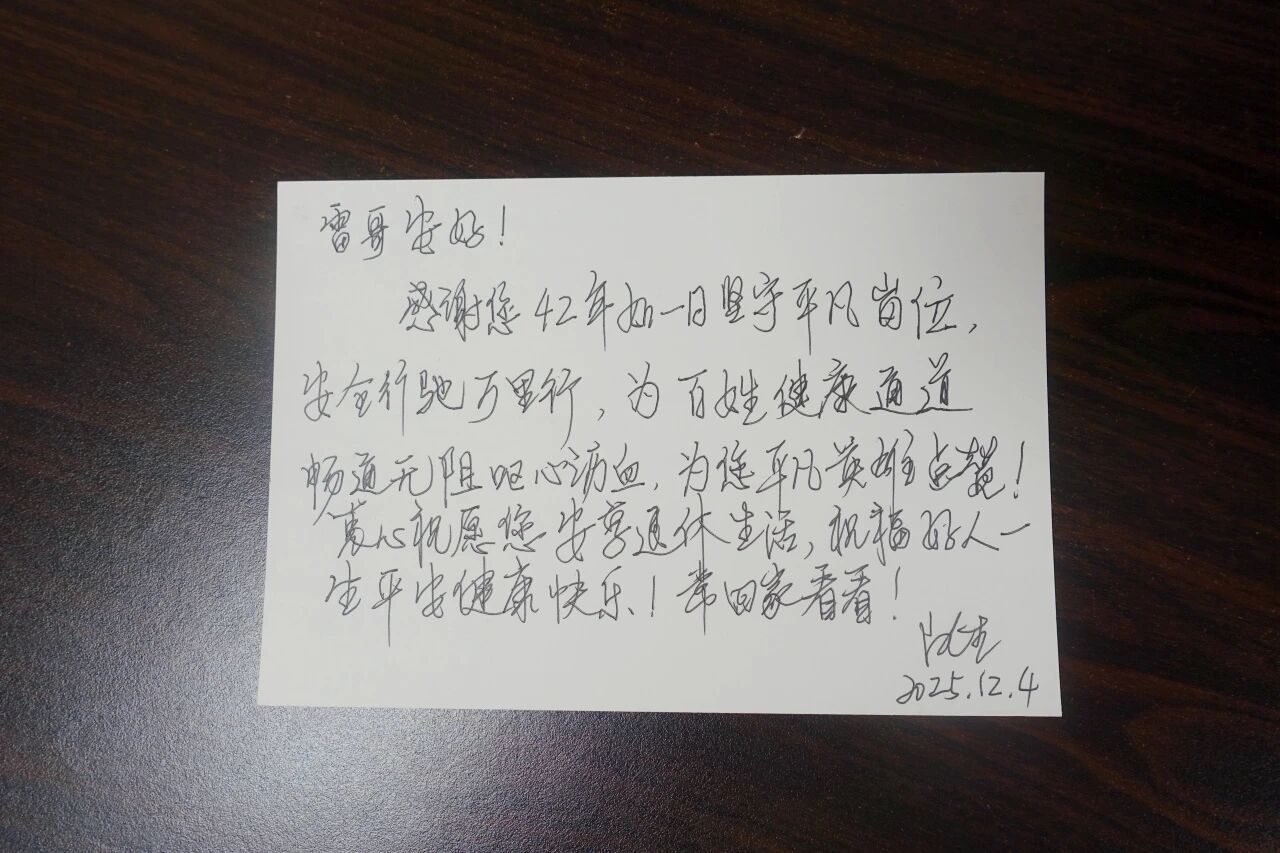 雷哥安好!
感谢您42年如一日坚守平凡岗位,
安全行驰万里行,为百姓健康通道
畅通无阻呕心沥血,为您平凡英雄点赞!
衷心祝愿您安享退休生活,祝福好人一
生平安健康快乐!常回家看看!
2025.12.4